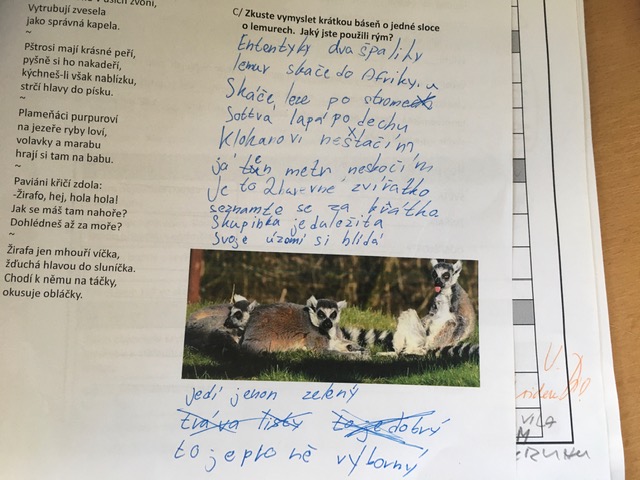 Vytrubují zvesela
jako správná kapela.
~
Pštrosi mají krásné peří,
pyšně si ho nakadeří,
kýchneš-li však nablízku,
strčí hlavy do písku.
~
Plameňáci purpuroví
na jezeře ryby loví,
volavky a marabu
hrají si tam na babu.
~
Paviáni křičí zdola:
-Žirafo, hej, hola hola!
Jak se máš tam nahoře?
Dohlédneš až za moře?
~
Žirafa jen mhouří víčka,
žďuchá hlavou do sluníčka.
Chodí k němu na táčky,
okusuje obláčky.
C/ Zkuste vymyslet krátkou báseň o jedné sloce
o lemurech. Jaký jste použili rým?
Ententyky dva špalíky
lemur skáče do Afriky.
Skáče, leze po stromech
Sotva lapá po dechu
Klokanovi nestačím
já ten metr neskočím
je to 2barevné zvířátko
seznamte se za krátko
Skupinka je daležitá
Svoje území si hlídá
jedí jenon zelený
tráva listy to je dobrý
to je pro ně výborný
VILA
M